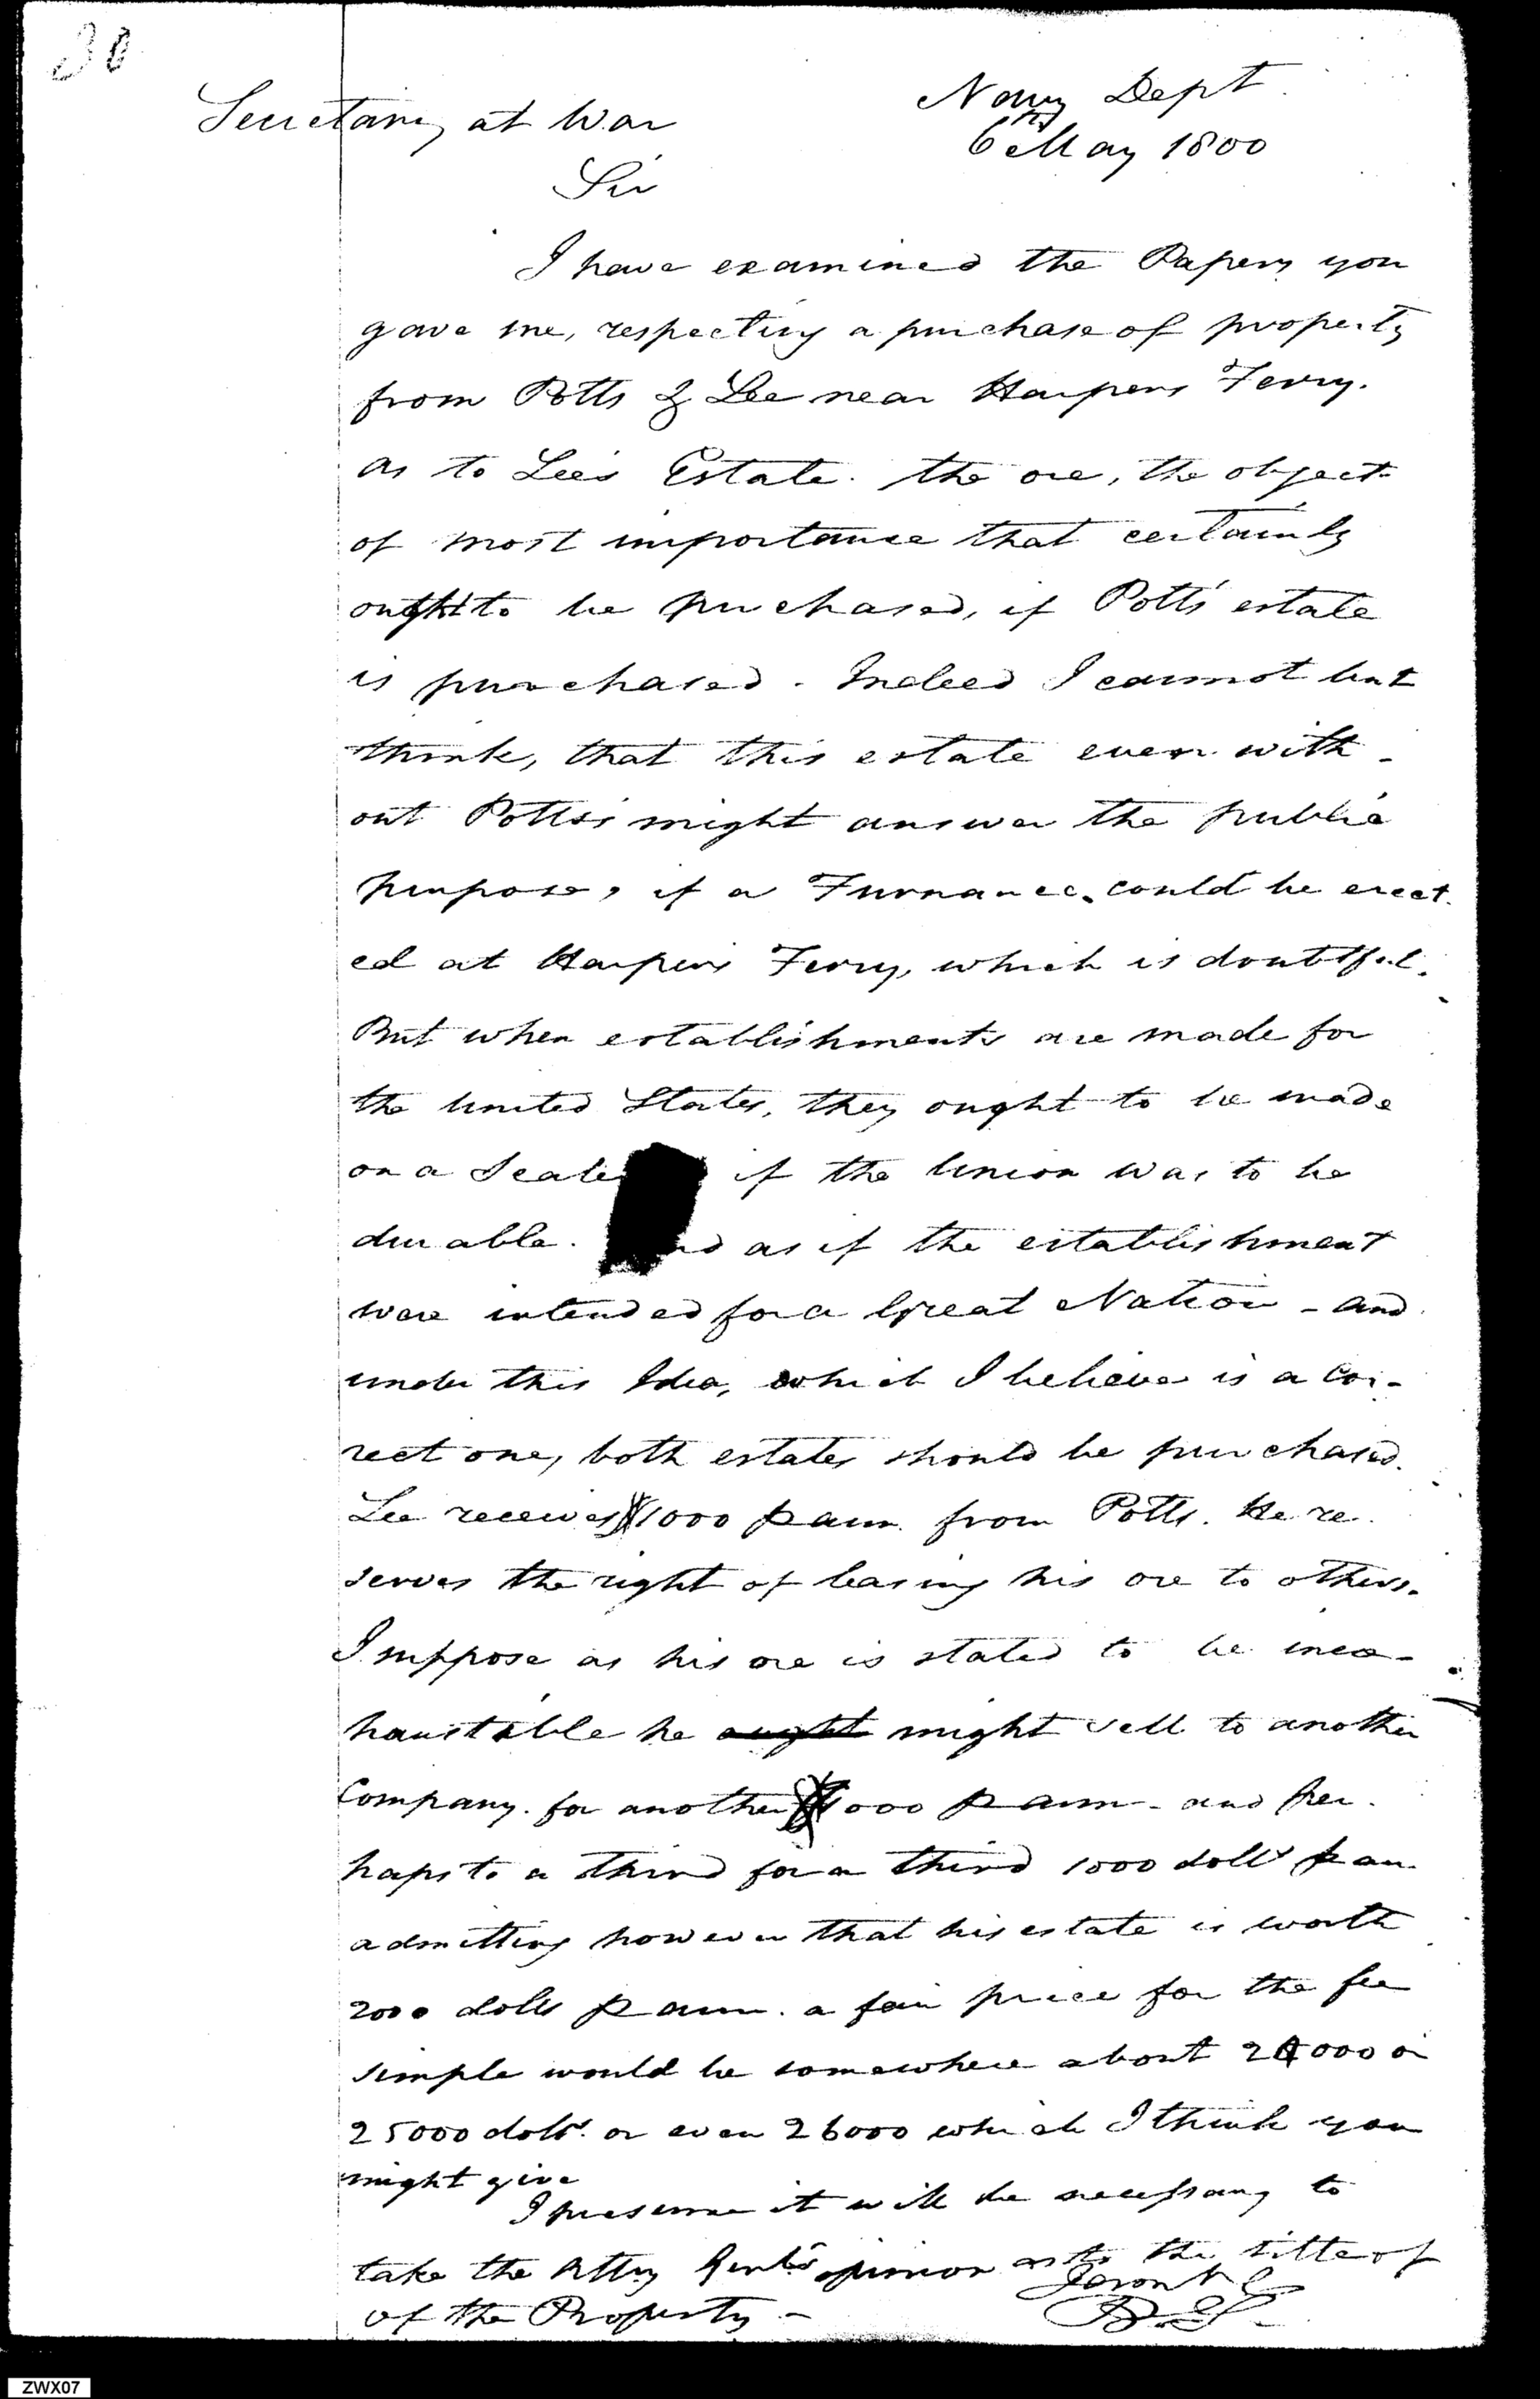 30
Navy Dept
Secretary at War
6th May 1800
Sir
I have examined the Papers you
gave me, respecting a purchase of property
from Potts & Lee near Harpers Ferry.
as to Lee's Estate. the ore, the object
of most importance that certainly
ought to be purchased, if Potts' estate
is purchased. Indeed I cannot but
think, that this estate even with-
out Potts's might answer the public
purpose, if a Furnance could be erect-
ed at Harpers Ferry, which is doubtful.
But when establishments are made for
the United States, they ought to be made
on a Scale if the Union was to be
durable. and as if the establishment
were intended for a Great Nation - and
under this Idea, which I believe is a cor-
rect one, both estates should be purchased.
Lee receives $1000 p ann. from Potts. He re-
serves the right of leasing his ore to others.
I suppose as his ore is stated to be inex-
haustable he ought might sell to another
Company. for another $1000 p ann - and per-
haps to a third for a third 1000 dolls p an.
admitting however that his estate is worth
2000 dolls p ann. a fair price for the fee
simple would be somewhere about 24000 or
25000 dolls. or even 26000 which I think you
might give
I presume it will be necessary to
take the Atty Genl's opinion as to the title of
of the Property -
B. S.
ZWX07